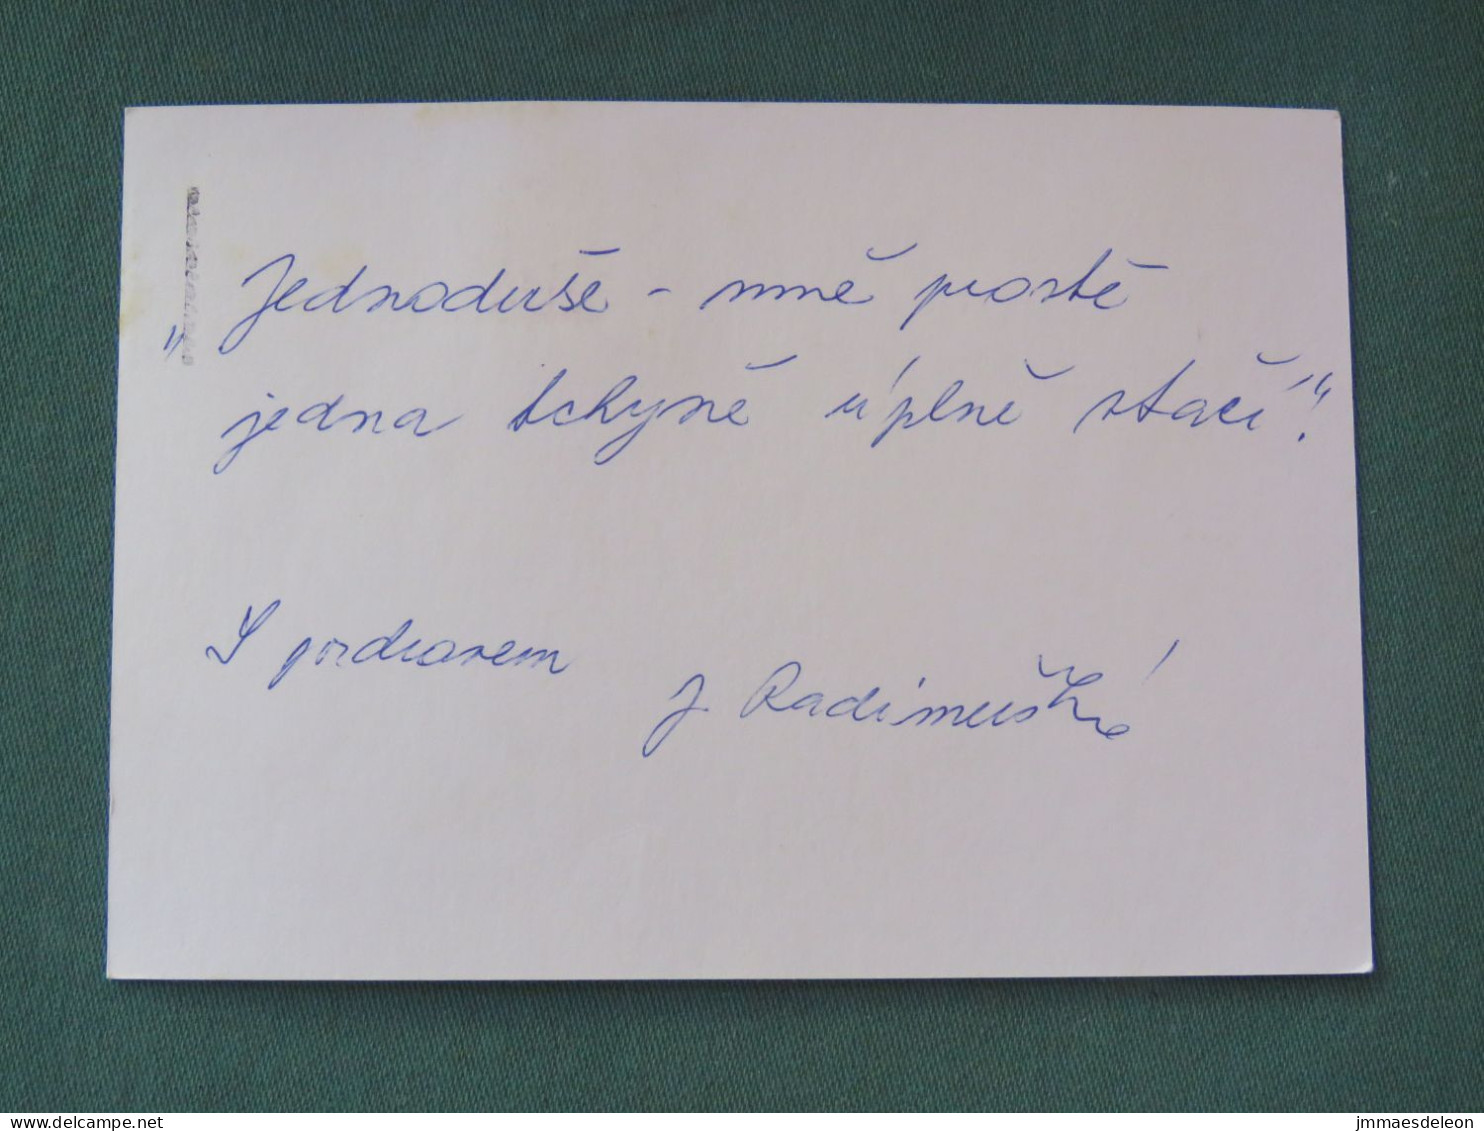 „Jednoduše - mně prostě
jedna tchyně úplně stačí“!
S pozdravem
J. Radimušká
www.delcampe.net
jmmaesdeleon